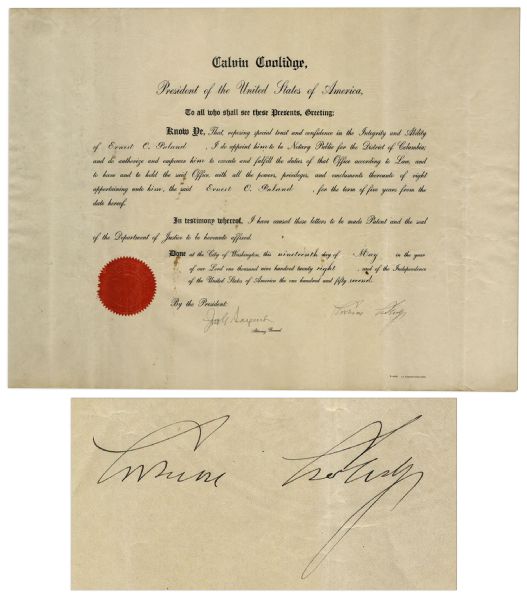 Calvin Coolidge,
President of the United States of America,
To all who shall see these Presents, Greeting:
Know Ye, That, reposing special trust and confidence in the Integrity and Ability
of Ernest C. Poland , I do appoint him to be Notary Public for the District of Columbia;
and do authorize and empower him to execute and fulfill the duties of that Office according to Law, and
to have and to hold the said Office, with all the powers, privileges, and emoluments thereunto of right
appertaining unto him, the said Ernest C. Poland , for the term of five years from the
date hereof.
In testimony whereof, I have caused these letters to be made Patent and the seal
of the Department of Justice to be hereunto affixed.
Done at the City of Washington, this nineteenth day of May in the year
of our Lord one thousand nine hundred twenty eight , and of the Independence
of the United States of America the one hundred and fifty second.
By the President:
Jno G Sargent Calvin Coolidge
Attorney General
Calvin Coolidge